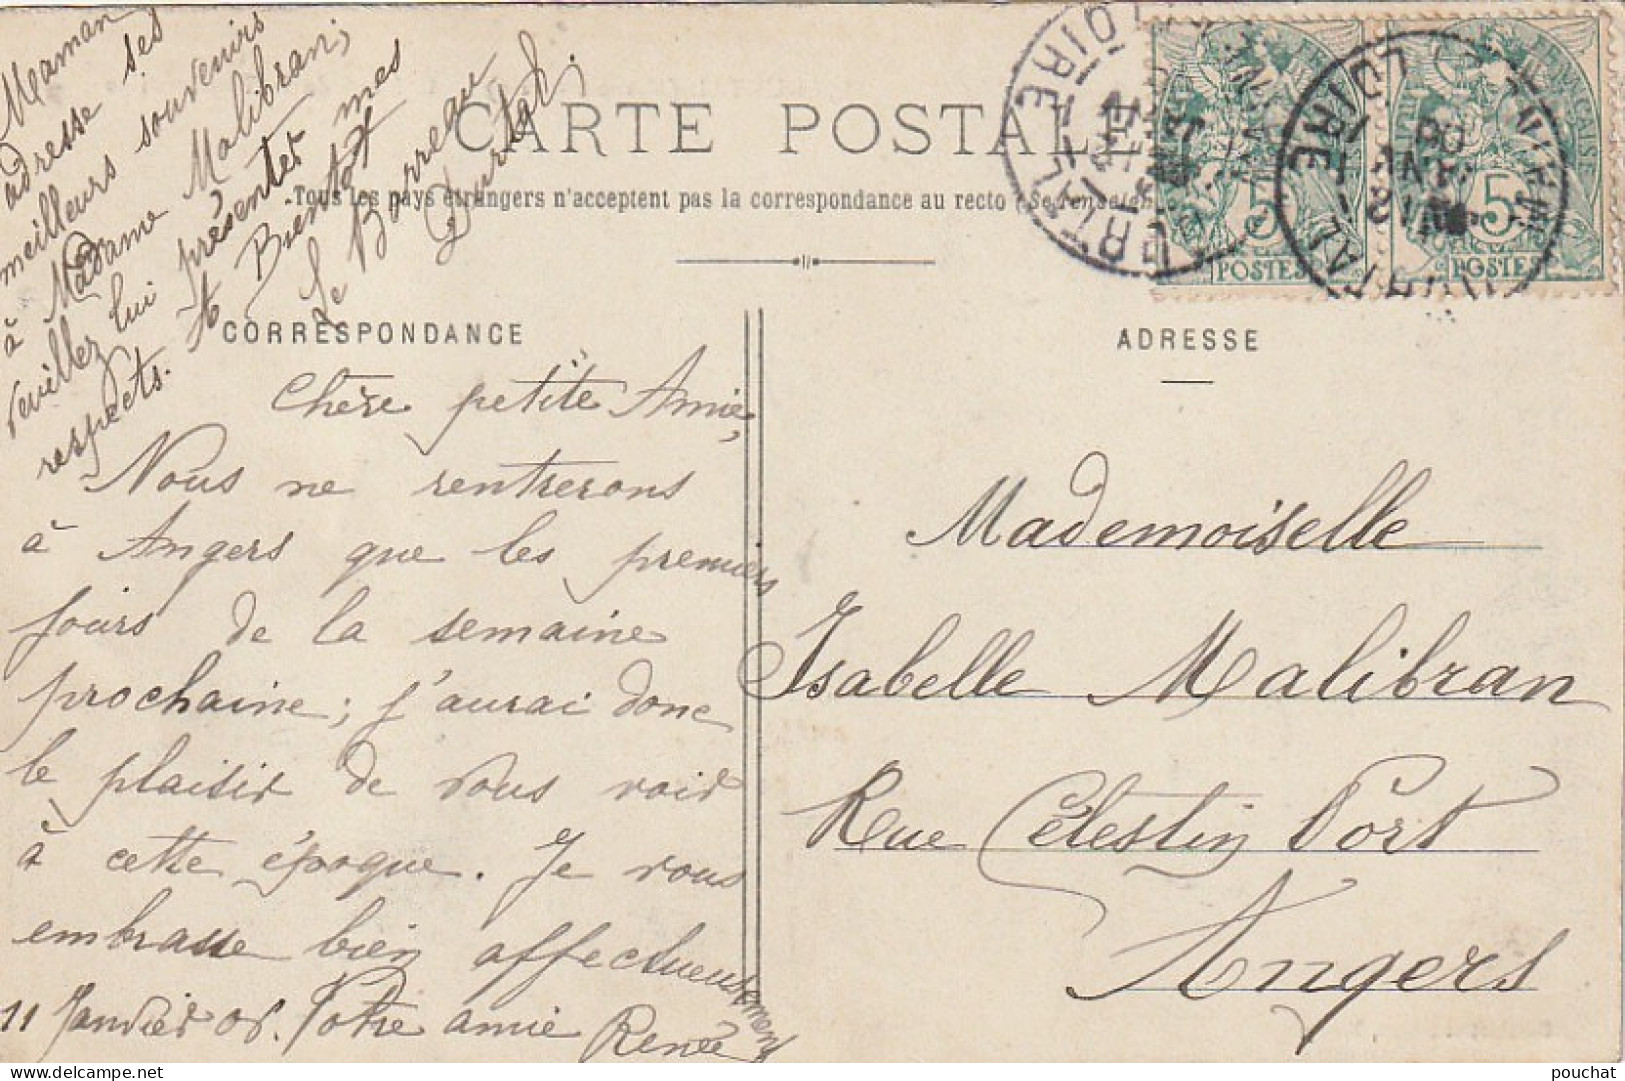 Maman
adresse ses
meilleurs souvenirs
à Madame Malibran;
veuillez lui présenter mes
respects. A Bientot
Le Barreque
Durtal.
CARTE POSTALE
Tous les pays étrangers n'acceptent pas la correspondance au recto (Se renseigner
CORRESPONDANCE
Chère petite Amie,
Nous ne rentrerons
à Angers que les premiers
jours de la semaine
prochaine; j'aurai donc
le plaisir de vous voir
à cette époque. Je vous
embrasse bien affectueusement
11 Janvier 08. Votre amie Renée
ADRESSE
Mademoiselle
Isabelle Malibran
Rue Célestin Port
Angers
DURTAL
LOIRE
5
POSTES
DURTAL
LOIRE
FRANÇAISE
5
POSTES
pouchat